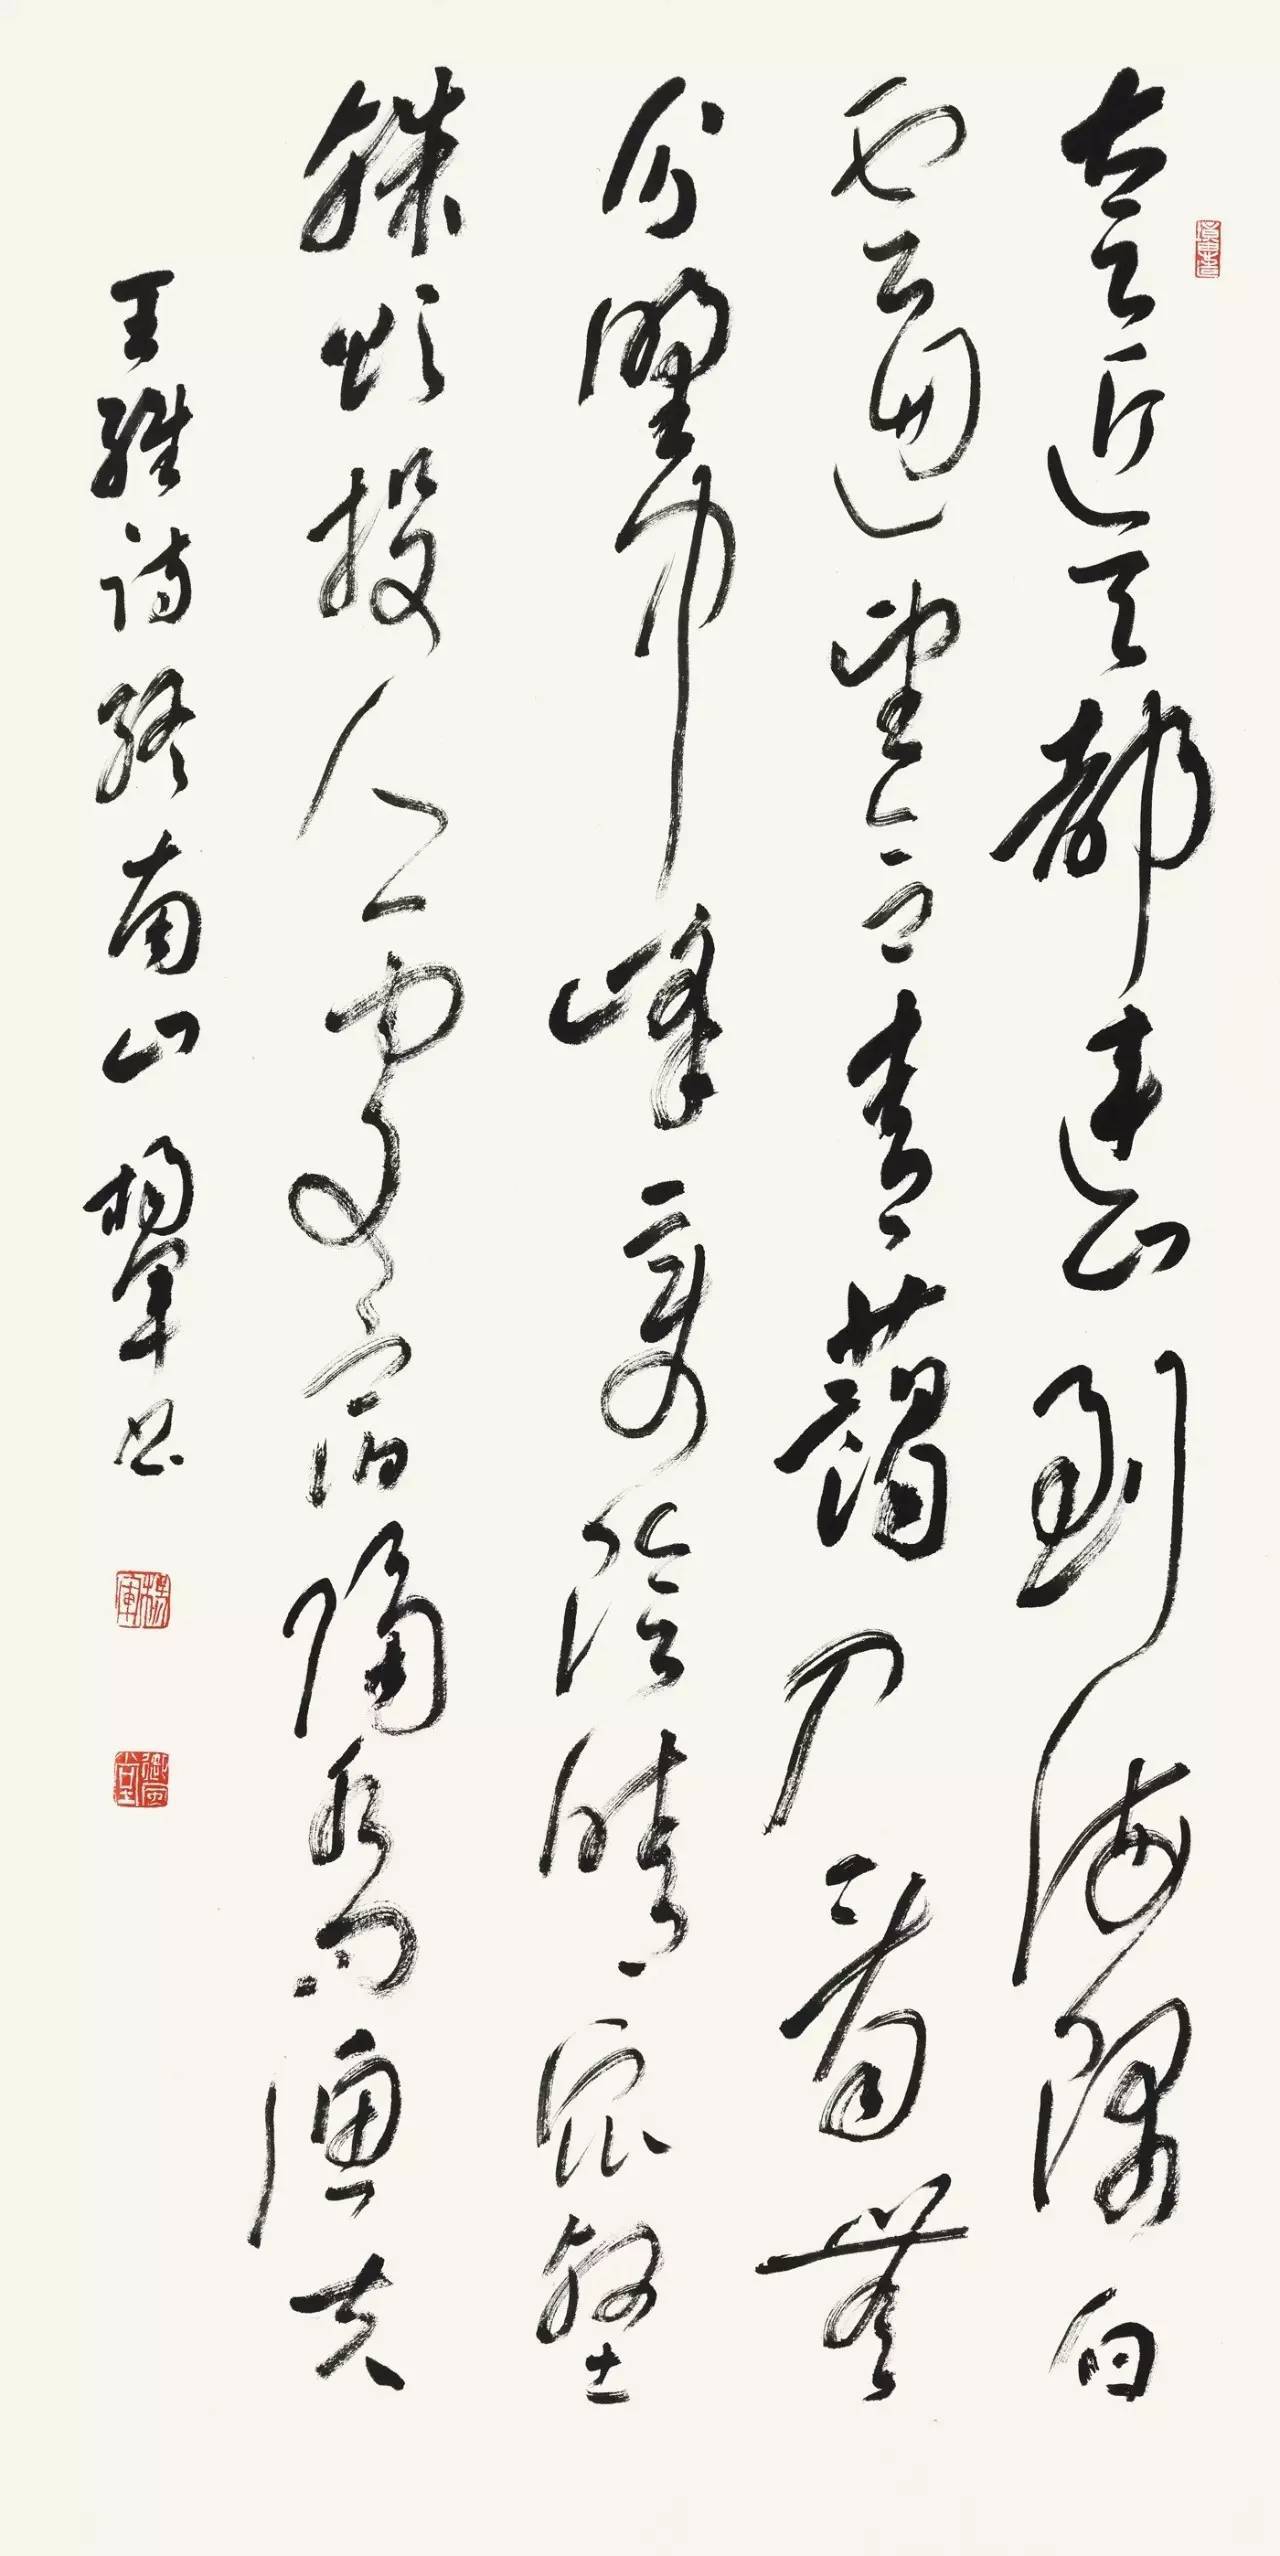 太乙近天都連山到海隅白
雲迴望合青藹入看無
分野中峰變陰晴眾壑
殊欲投人處宿隔水問漁夫
王維詩終南山 楊軍書
楊軍